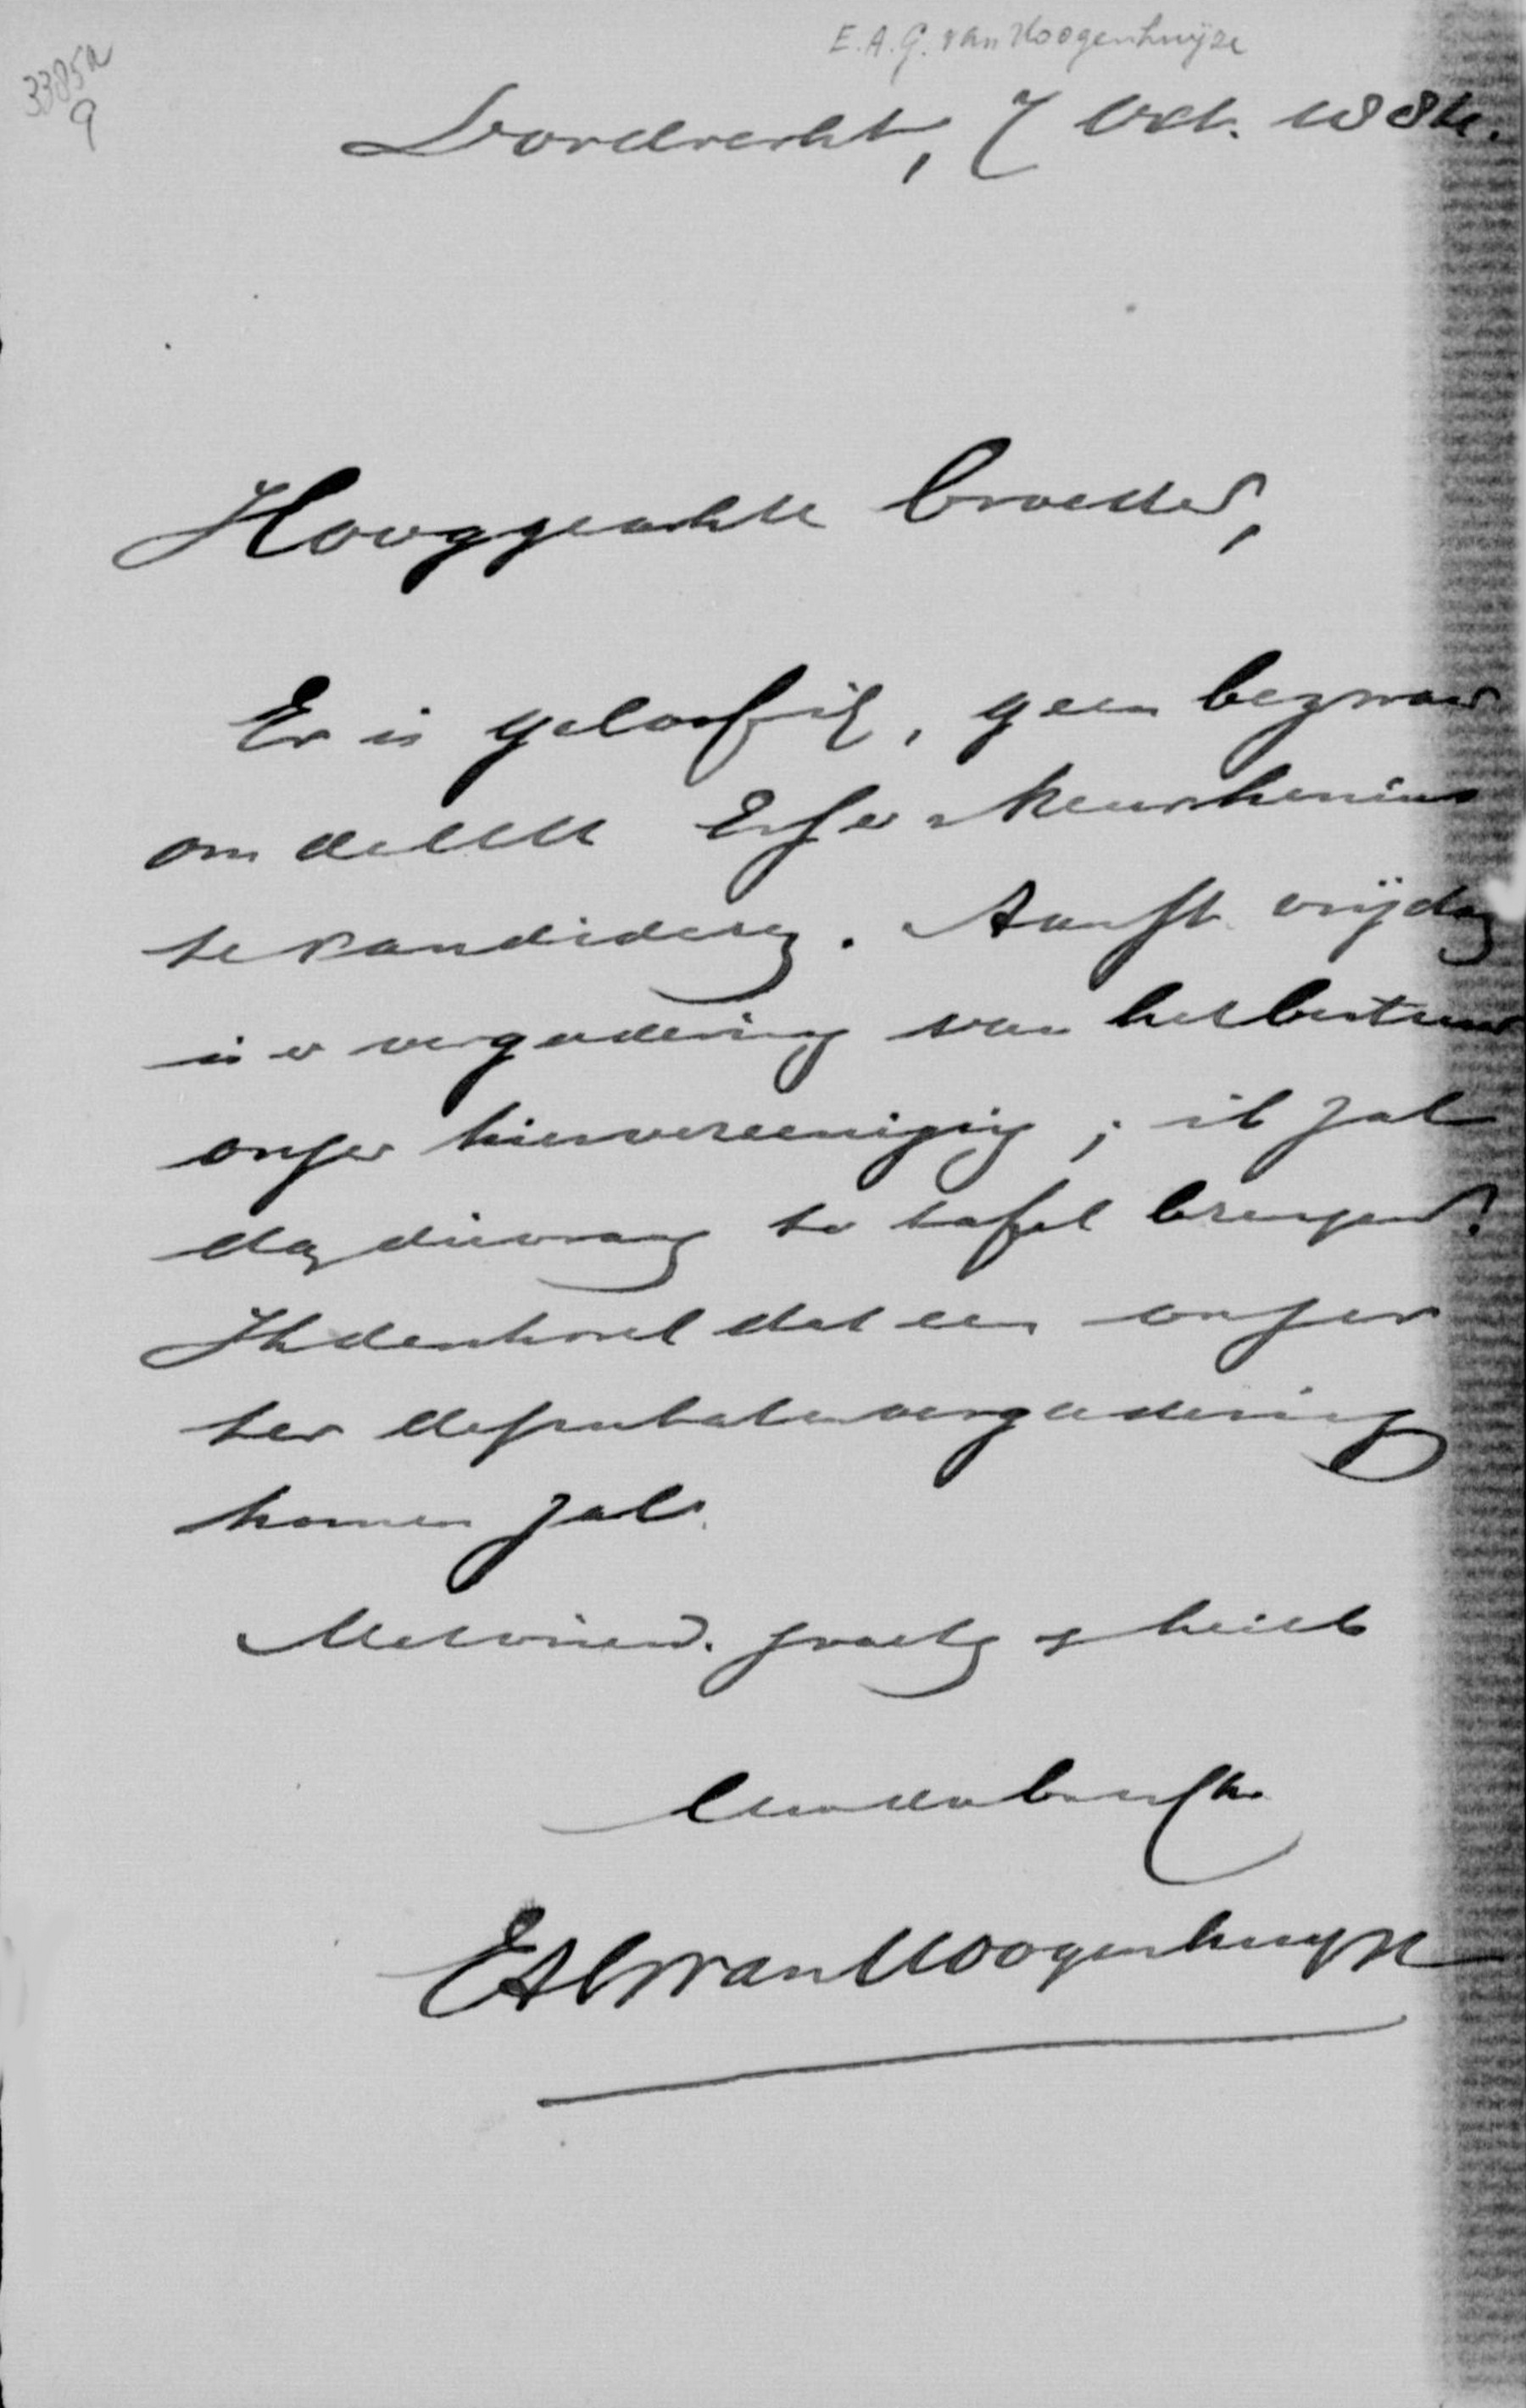 E.A.G. van Hoogenhuijze
3385a
9
Dordrecht, 7 Oct. 1884.
Hooggeachte broeder,
Er is geloof ik, geen bezwaar
om de Keuchenius
te kandideren. Aanst. vrijdag
is er vergadering van het bestuur
onzer kiesvereeniging; ik zal
dan die vraag ter tafel brengen.
Ik denk wel dat een onzer
ter deputatenvergadering
komen zal.
Met vriend. groeten & heilb
EAG van Hoogenhuyze